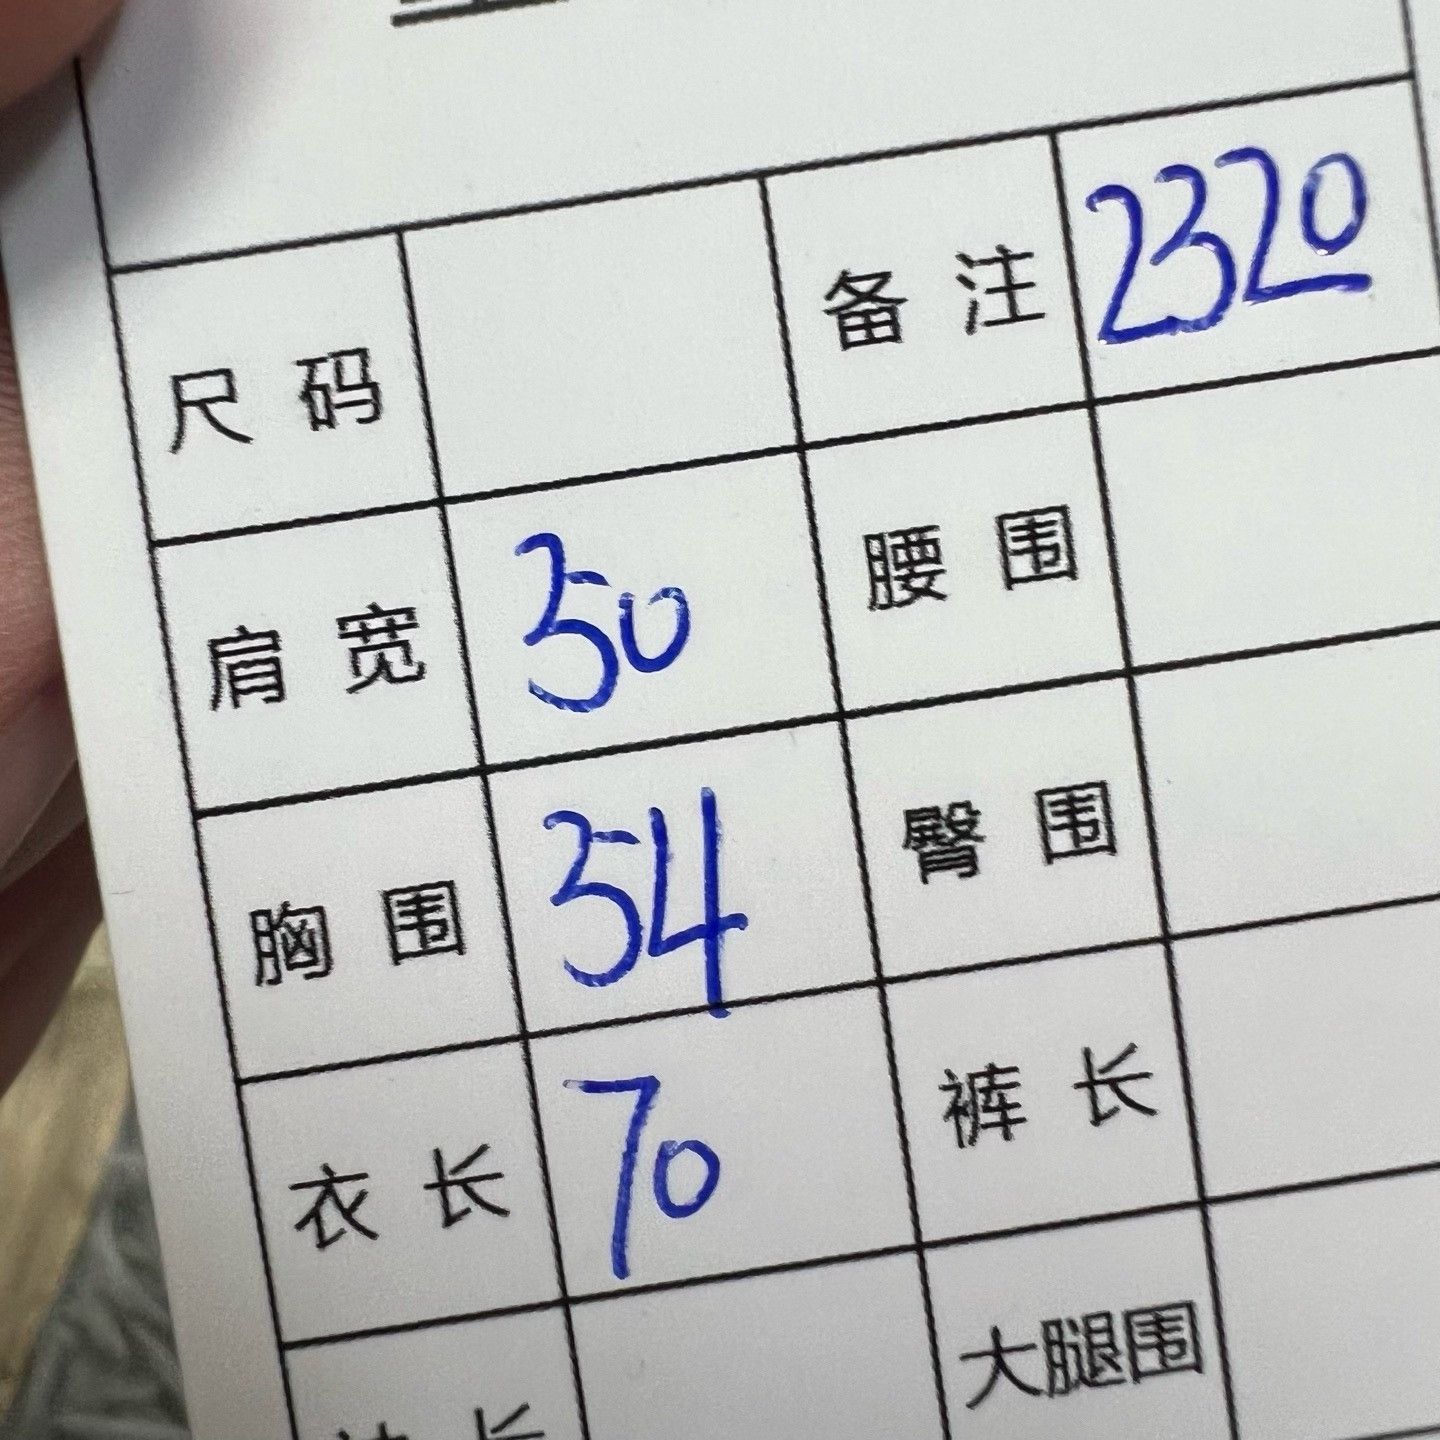 尺码 备注 2320
肩宽 50 腰围
胸围 54 臀围
衣长 70 裤长
长 大腿围